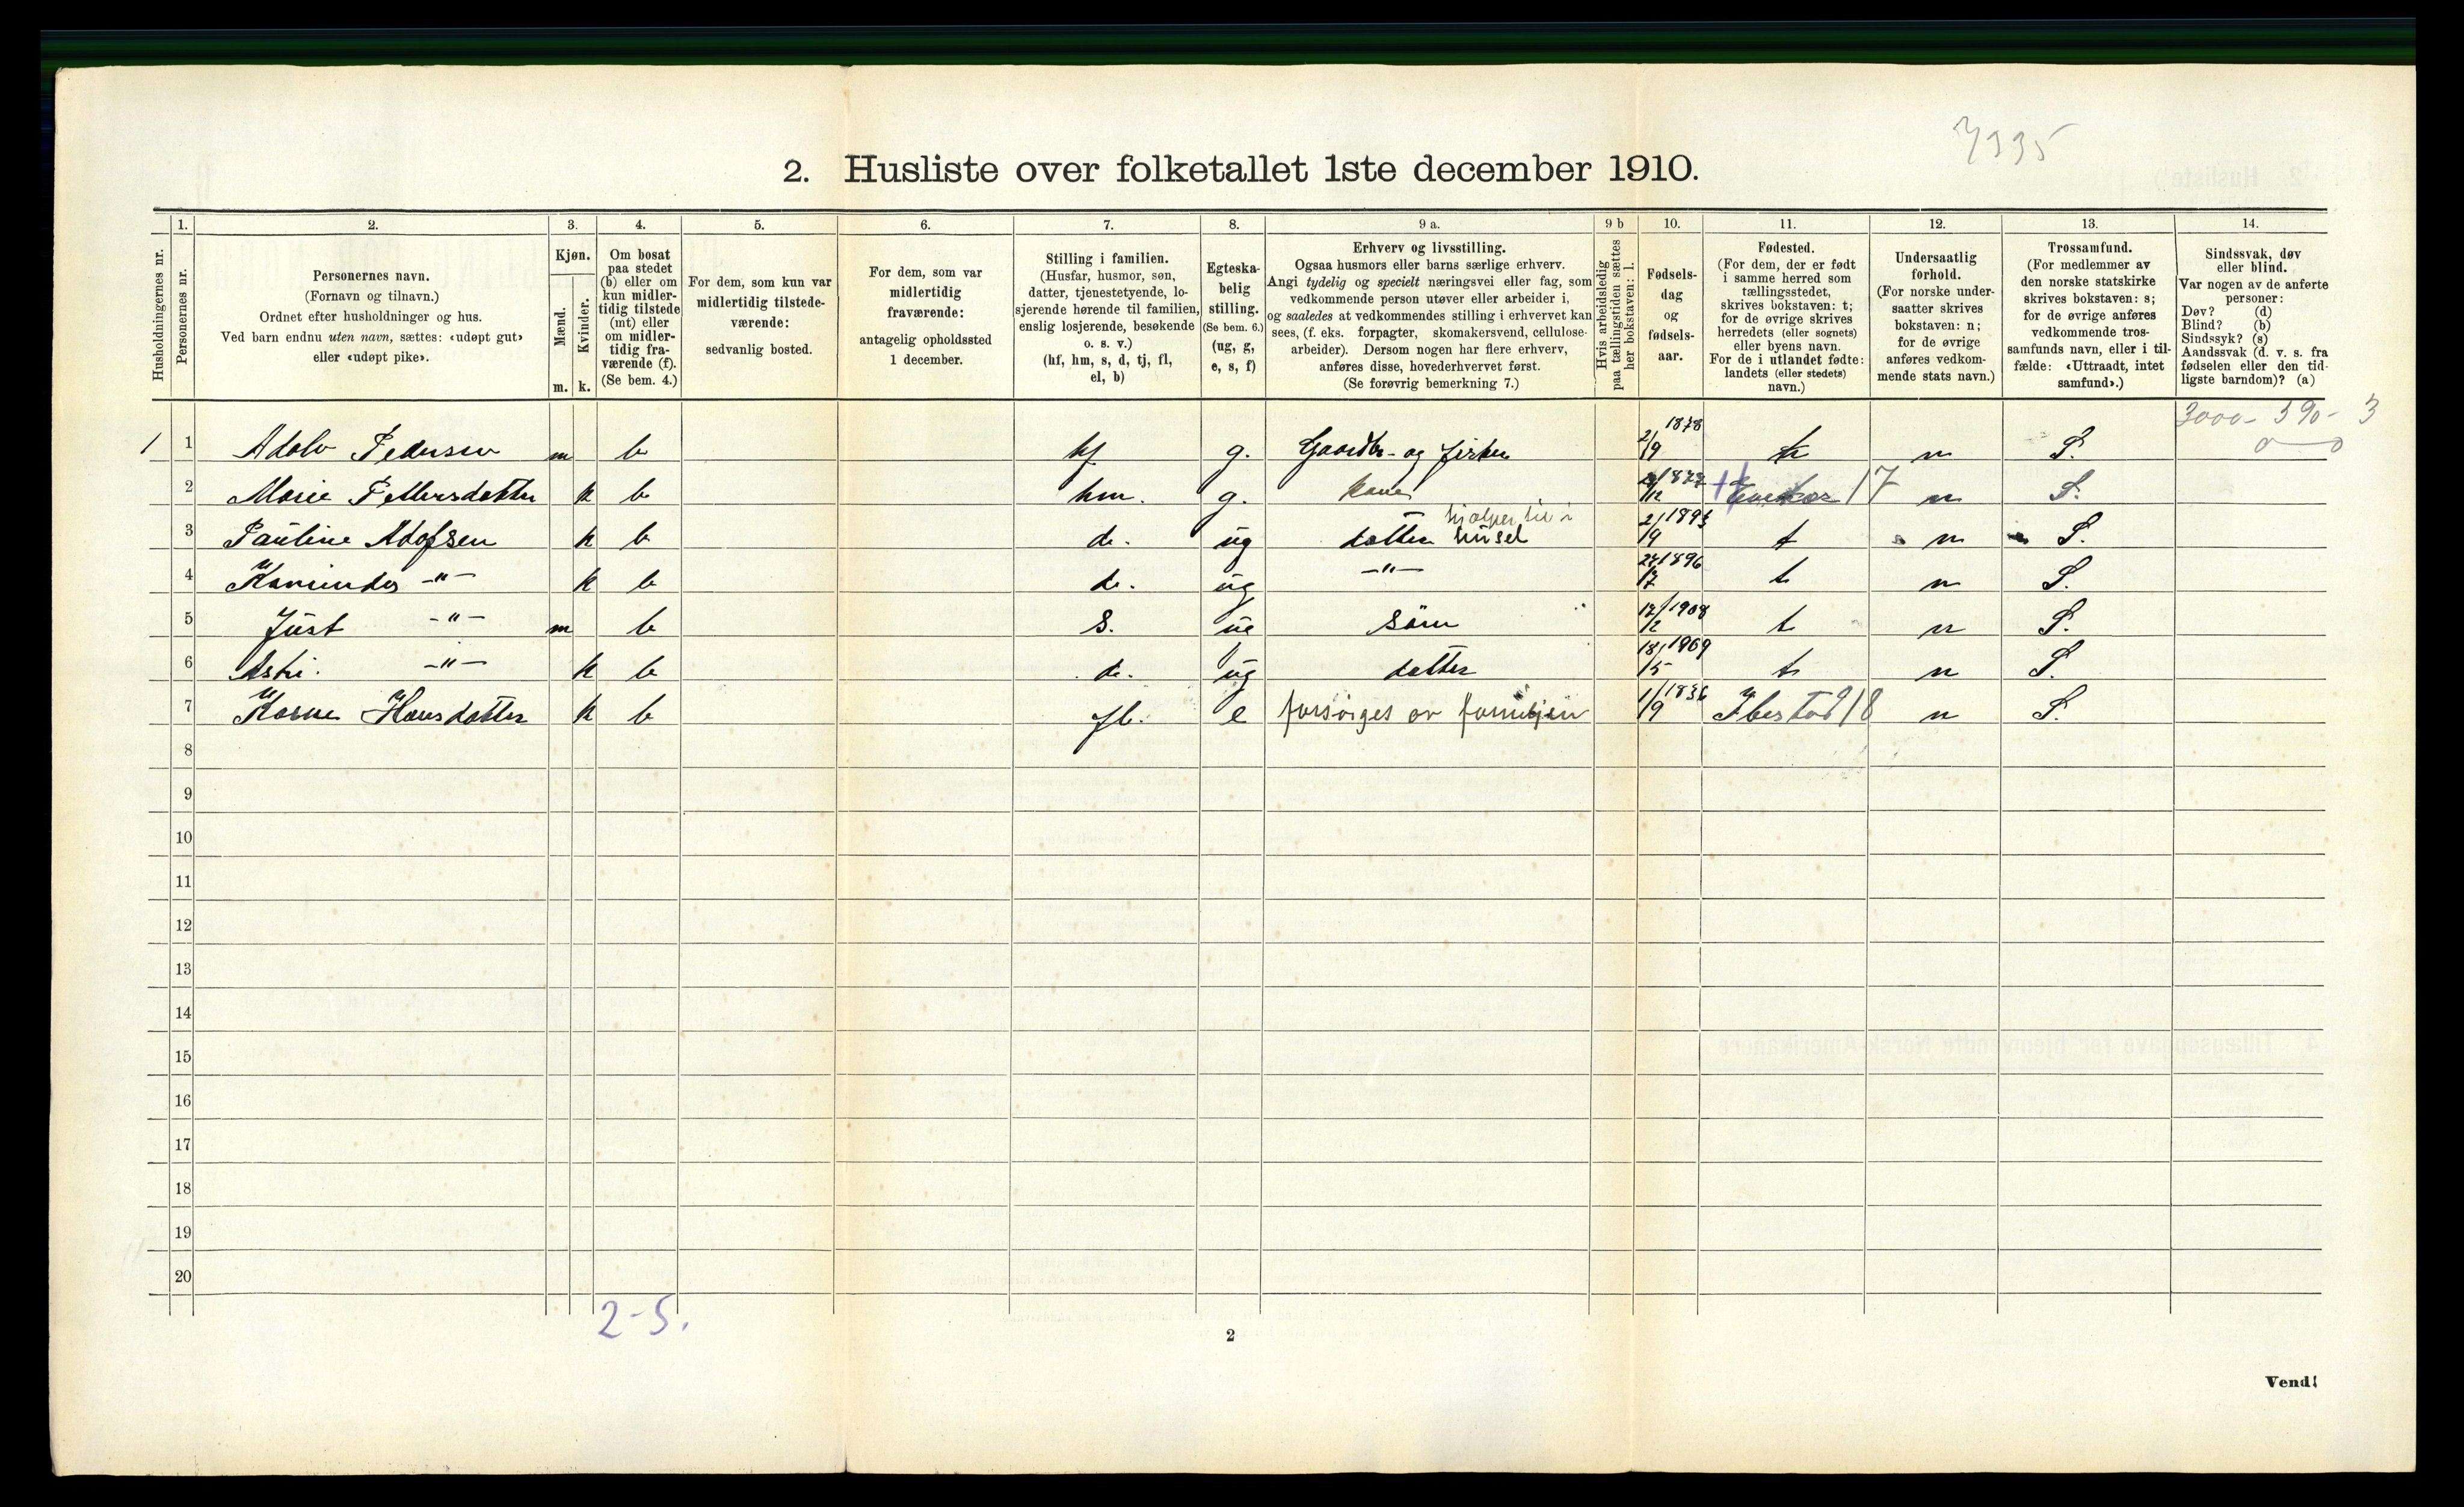 7335
2. Husliste over folketallet 1ste december 1910.
Husholdningernes nr.
1.
Personernes nr.
2.
Personernes navn.
(Fornavn og tilnavn.)
Ordnet efter husholdninger og hus.
Ved barn endnu uten navn, sættes: «udøpt gut»
eller «udøpt pike».
3.
Kjøn.
Mænd.
Kvinder.
m. k.
4.
Om bosat
paa stedet
(b) eller om
kun midler-
tidig tilstede
(mt) eller
om midler-
tidig fra-
værende (f).
(Se bem. 4.)
5.
For dem, som kun var
midlertidig tilstede-
værende:
sedvanlig bosted.
6.
For dem, som var
midlertidig
fraværende:
antagelig opholdssted
1 december.
7.
Stilling i familien.
(Husfar, husmor, søn,
datter, tjenestetyende, lo-
sjerende hørende til familien,
enslig losjerende, besøkende
o. s. v.)
(hf, hm, s, d, tj, fl,
el, b)
8.
Egteska-
belig
stilling.
(Se bem. 6.)
(ug, g,
e, s, f)
9 a.
Erhverv og livsstilling.
Ogsaa husmors eller barns særlige erhverv.
Angi tydelig og specielt næringsvei eller fag, som
vedkommende person utøver eller arbeider i,
og saaledes at vedkommendes stilling i erhvervet kan
sees, (f. eks. forpagter, skomakersvend, cellulose-
arbeider). Dersom nogen har flere erhverv,
anføres disse, hovederhvervet først.
(Se forøvrig bemerkning 7.)
9 b
Hvis arbeidsledig
paa tællingstiden sættes
her bokstaven: l.
10.
Fødsels-
dag
og
fødsels-
aar.
11.
Fødested.
(For dem, der er født
i samme herred som
tællingsstedet,
skrives bokstaven: t;
for de øvrige skrives
herredets (eller sognets)
eller byens navn.
For de i utlandet fødte:
landets (eller stedets)
navn.)
12.
Undersaatlig
forhold.
(For norske under-
saatter skrives
bokstaven: n;
for de øvrige
anføres vedkom-
mende stats navn.)
13.
Trossamfund.
(For medlemmer av
den norske statskirke
skrives bokstaven: s;
for de øvrige anføres
vedkommende tros-
samfunds navn, eller i til-
fælde: «Uttraadt, intet
samfund».)
14.
Sindssvak, døv
eller blind.
Var nogen av de anførte
personer:
Døv? (d)
Blind? (b)
Sindssyk? (s)
Aandssvak (d. v. s. fra
fødselen eller den tid-
ligste barndom)? (a)
3000 - 590 - 3
0 — 0
1 1 Adolv Pedersen m b hf g. Gaardbr- og fisker 2/9 1878 t n S.
2 Marie Pettersdatter k b hm. g. kone n S.
3 Pauline Adofsen k b d. ug datter hjælper til i huset 2/9 1893 t n S.
4 -"- k b d. ug -"- 1896 t n S.
5 Just -"- m b s. ug søn 12/2 1908 t n S.
6 Astri. -"- k b d. ug datter 18/5 1909 t n S.
7 Karne Hansdatter k b fl. e forsørges av familjen 1/9 1836 Ibestad 18 n S.
8
9
10
11
12
13
14
15
16
17
18
19
20
2-5.
2
Vend!